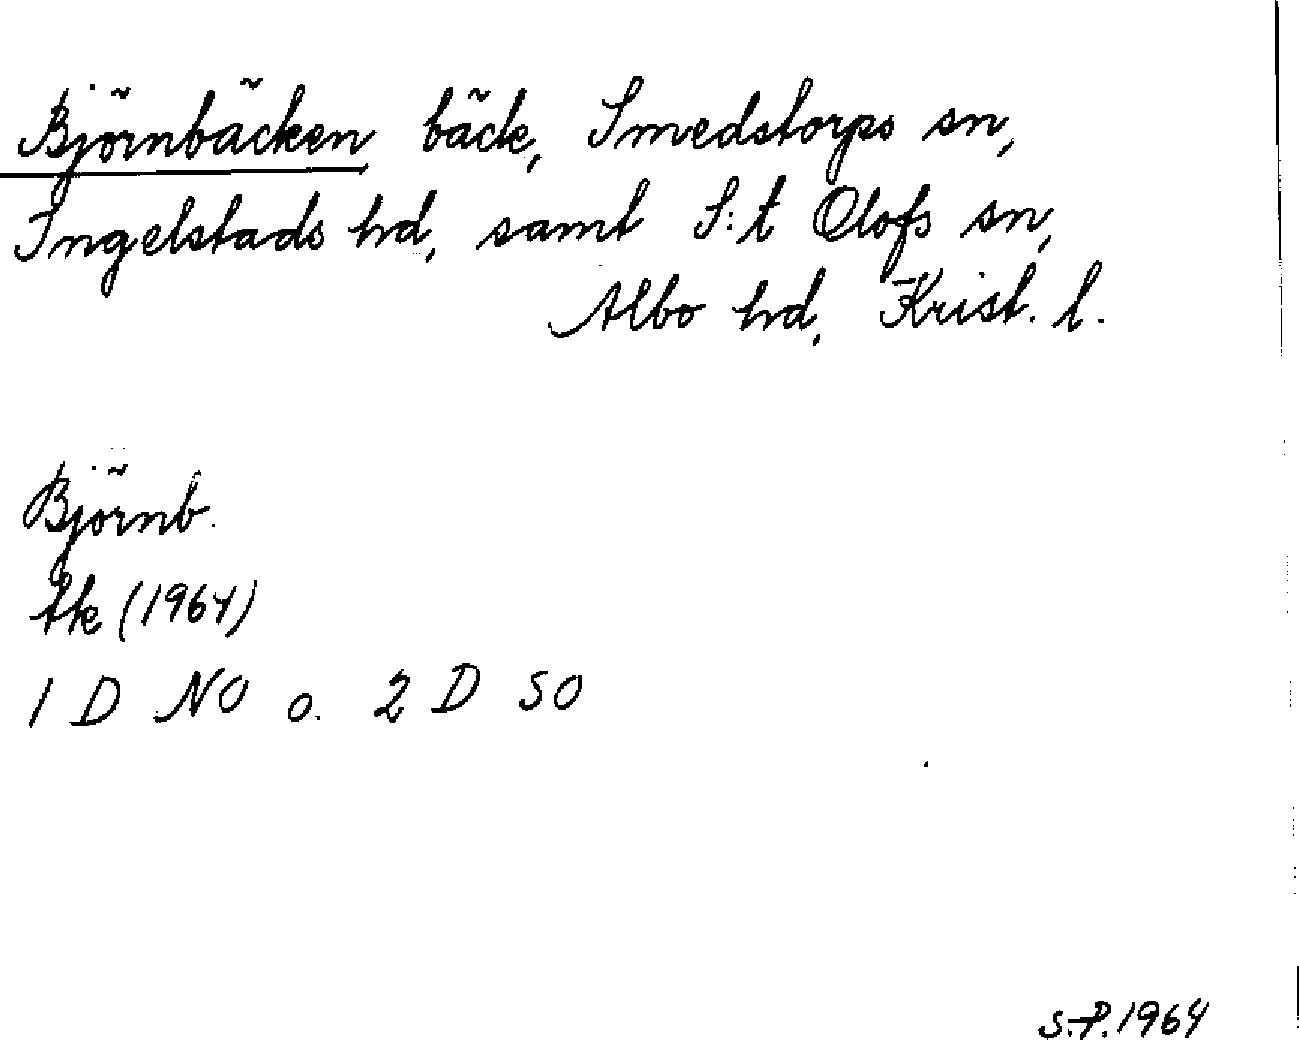 Björnbäcken bäck, Smedstorps sn,
Ingelstads hd, samt S:t Olofs sn,
Albo hd, Krist. l.
Björnb.
tk (1964)
1 D NO o. 2 D SO
S.P. 1964